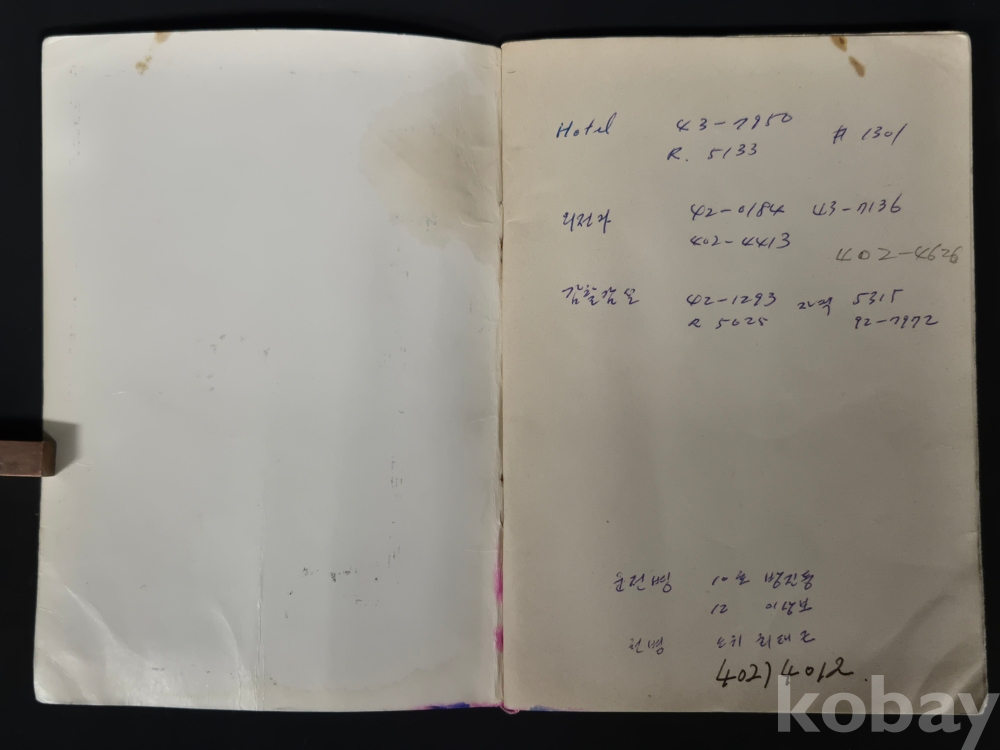 Hotel 43-7950 # 1301
R. 5133
의전과 42-0184 43-7136
402-4413 402-4626
감찰감실 42-1293 자택 5315
R 5025 92-7972
운전병 10호 방진용
12
헌병 소위 최대
402) 4012.
kobay